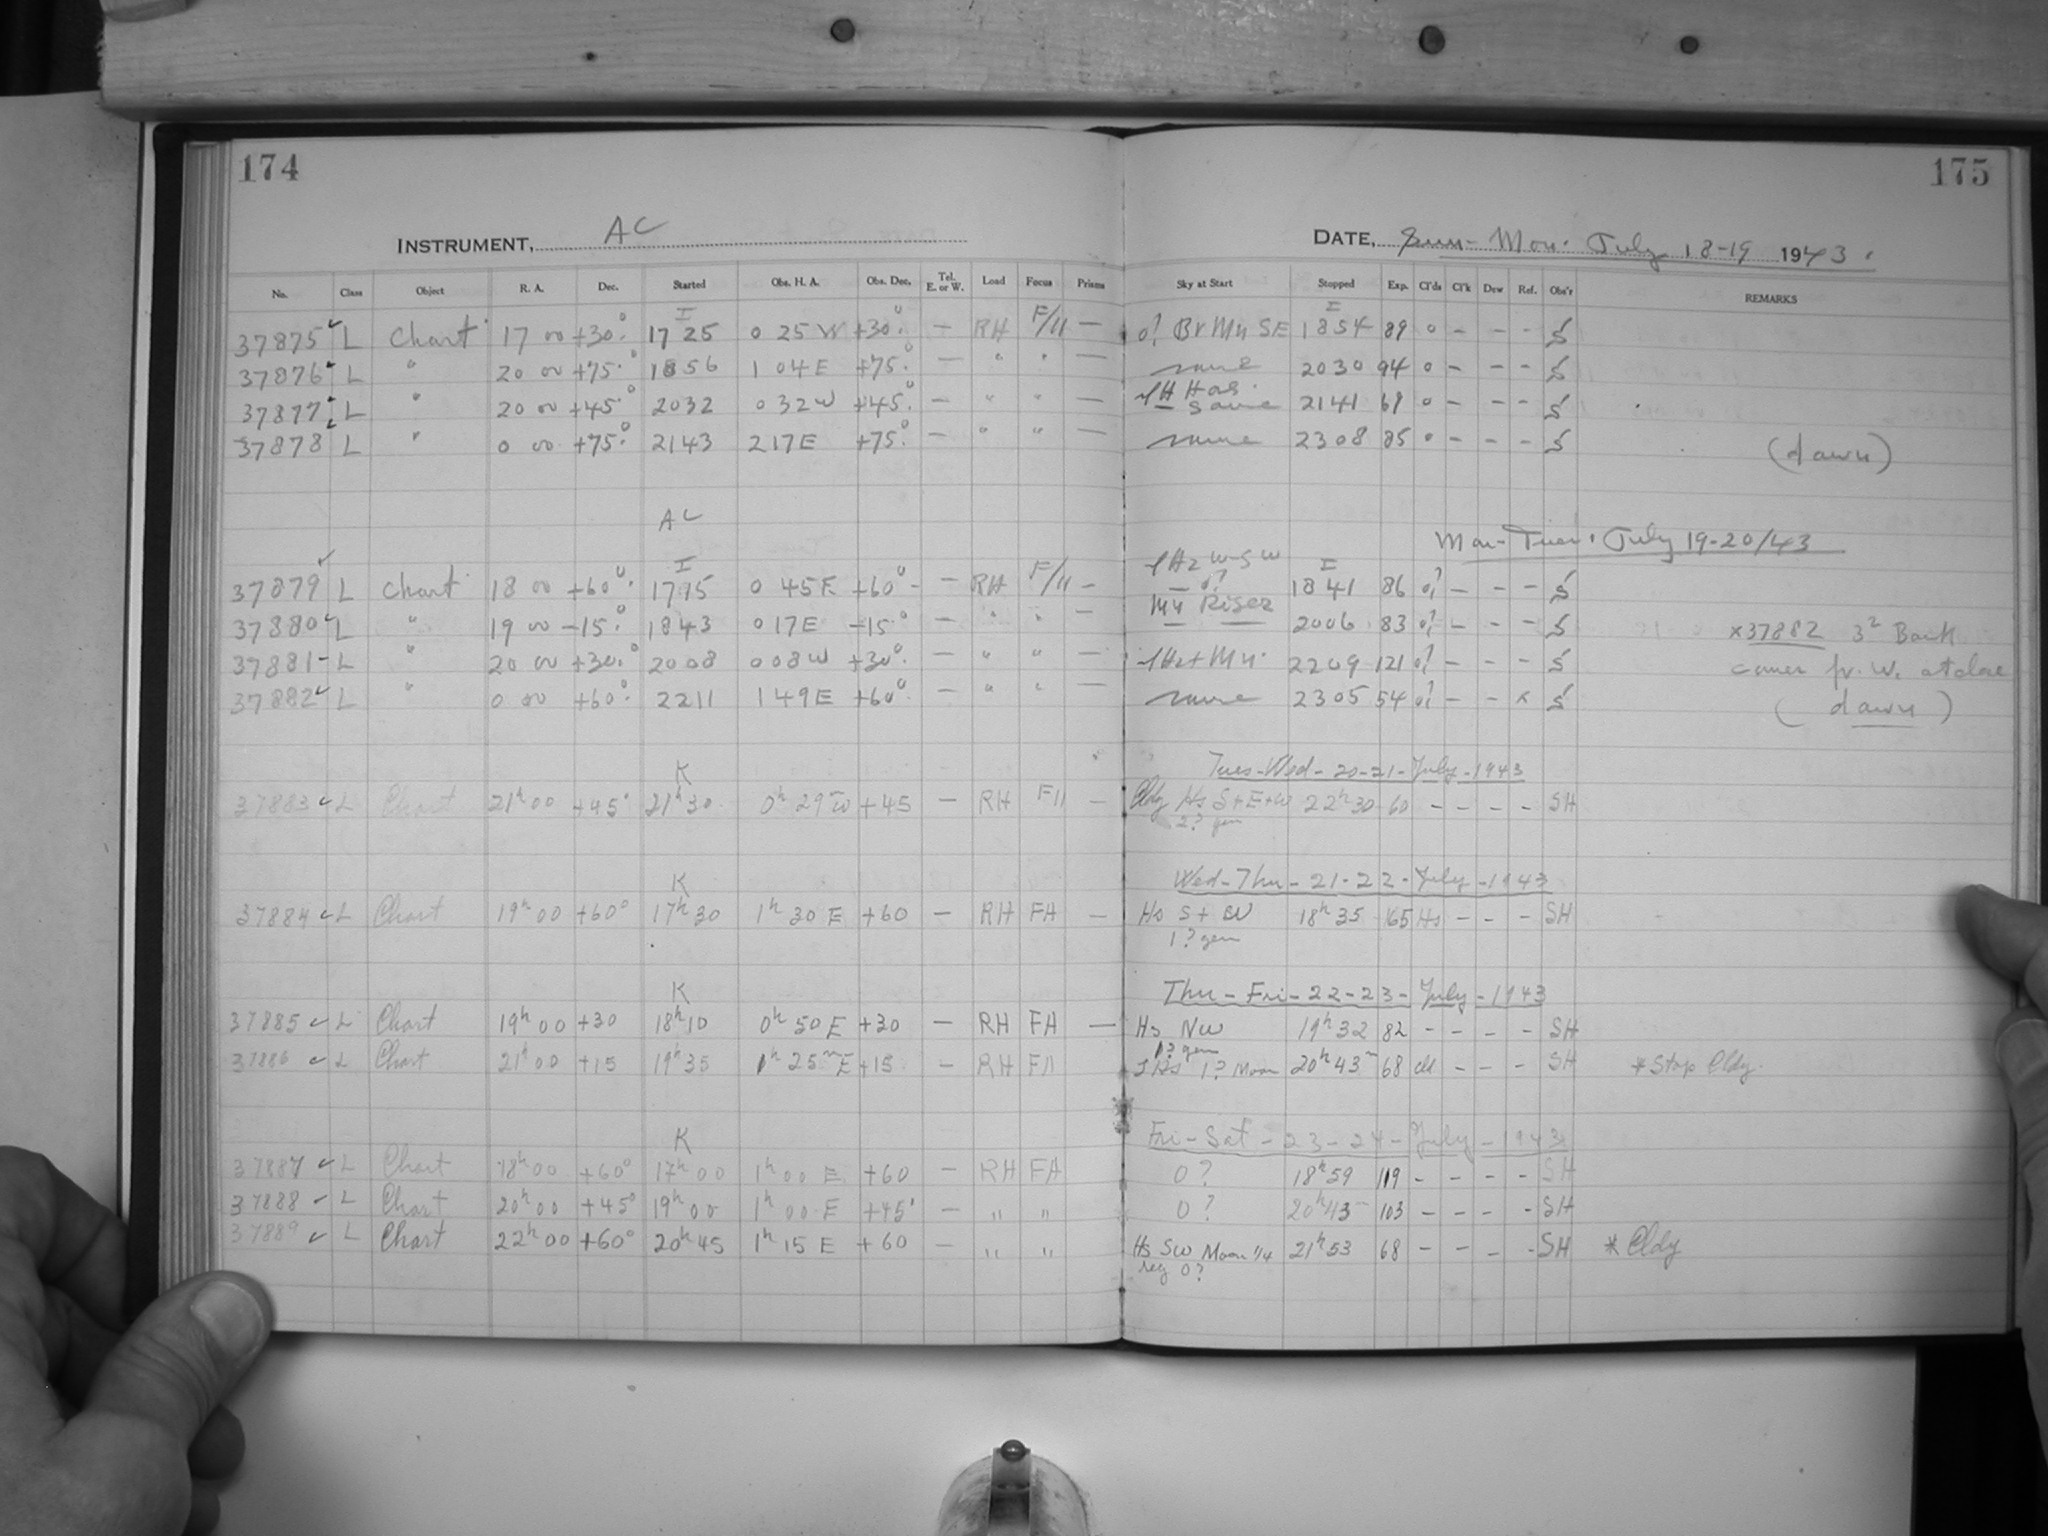 174
175
INSTRUMENT, AC
DATE, Sun-Mon. July 18-19 1943.
No. Class Object R. A. Dec. Started Obs. H. A. Obs. Dec. Tel. E. or W. Load Focus Prisms Sky at Start Stopped Exp. Cl'ds Cl'k Dew Ref. Obs'r REMARKS
I I
37875 ✓ L Chart 17 00 +30°. 1725 0 25 W +30°. — RH F/11 — 0? Br Mn SE 1854 89 0 - - - S
37876 ✓ L " 20 00 +75.° 1856 1 04 E +75.° — " " — same 2030 94 0 - - - S
37877 ✓ L " 20 00 +45.° 2032 0 32 W +45.° — " " — same 2141 69 0 - - - S
37878 ✓ L " 0 00 +75.° 2143 2 17 E +75.° — " " — same 2308 85 0 - - - S (dawn)
AC
Mon-Tues. July 19-20/43
I I
37879 ✓ L Chart 18 00 +60°. 1715 0 45 E +60° — RH F/11 — 0? 1841 86 0? - - - S
37880 ✓ L " 19 00 -15.° 1843 0 17 E -15.° — " " — Mn Rises 2006 83 0? - - - S x37882 3² Bank
37881 - L " 20 00 +30.° 2008 0 08 W +30.° — " " Hz + Mn. 2209 121 0? - - - S comes fr. W. at close
37882 ✓ L " 0 00 +60.° 2211 1 49 E +60.° — " " — same 2305 54 0? - - x S (dawn)
Tues-Wed-20-21-July-1943
K
37883 ✓ L Chart 21ʰ 00 +45° 21ʰ 30 0ʰ 29ᵐ W +45 — RH F11 — Cldy Hs S+E+W 22ʰ 30 60 - - - - SH
2? gen
Wed-Thu-21-22-July-1943
K
37884 ✓ L Chart 19ʰ 00 +60° 17ʰ 30 1ʰ 30 E +60 — RH F11 — Hs S + W 18ʰ 35 65 Hs - - - SH
1? gen
Thu-Fri-22-23-July-1943
K
37885 ✓ L Chart 19ʰ 00 +30 18ʰ 10 0ʰ 50 E +30 — RH F11 — Hs NW 19ʰ 32 82 - - - - SH
1? gen
37886 ✓ L Chart 21ʰ 00 +15 19ʰ 35 1ʰ 25ᵐ E +15 — RH F11 Hs 1? Moon 20ʰ 43ᵐ 68 cld - - - SH *Stop Cldy.
Fri-Sat-23-24-July-1943
K
37887 ✓ L Chart 18ʰ 00 +60° 17ʰ 00 1ʰ 00 E +60 — RH F11 0? 18ʰ 59 119 - - - - SH
37888 ✓ L Chart 20ʰ 00 +45° 19ʰ 00 1ʰ 00 E +45° — " " 0? 20ʰ 43 103 - - - - SH
37889 ✓ L Chart 22ʰ 00 +60° 20ʰ 45 1ʰ 15 E +60 — " " Hs SW Moon 1/4 21ʰ 53 68 - - - - SH * Cldy
reg 0?